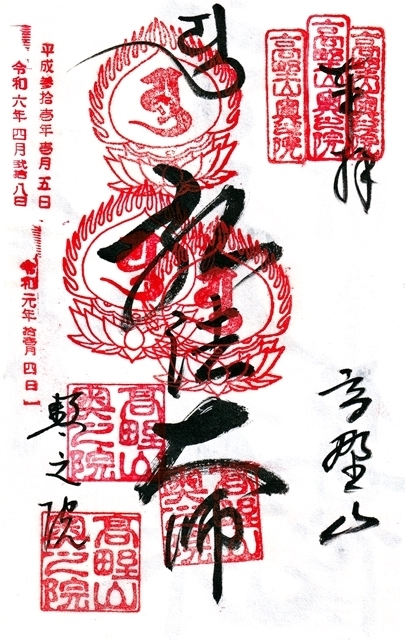 奉拝
高野山奥之院
高野山奥之院
高野山奥之院
高野山
弘法大師
奥之院
高野山奥之院
高野山奥之院
高野山奥之院
平成参拾壱年壱月五日
令和六年四月弐拾八日
令和元年拾壱月四日